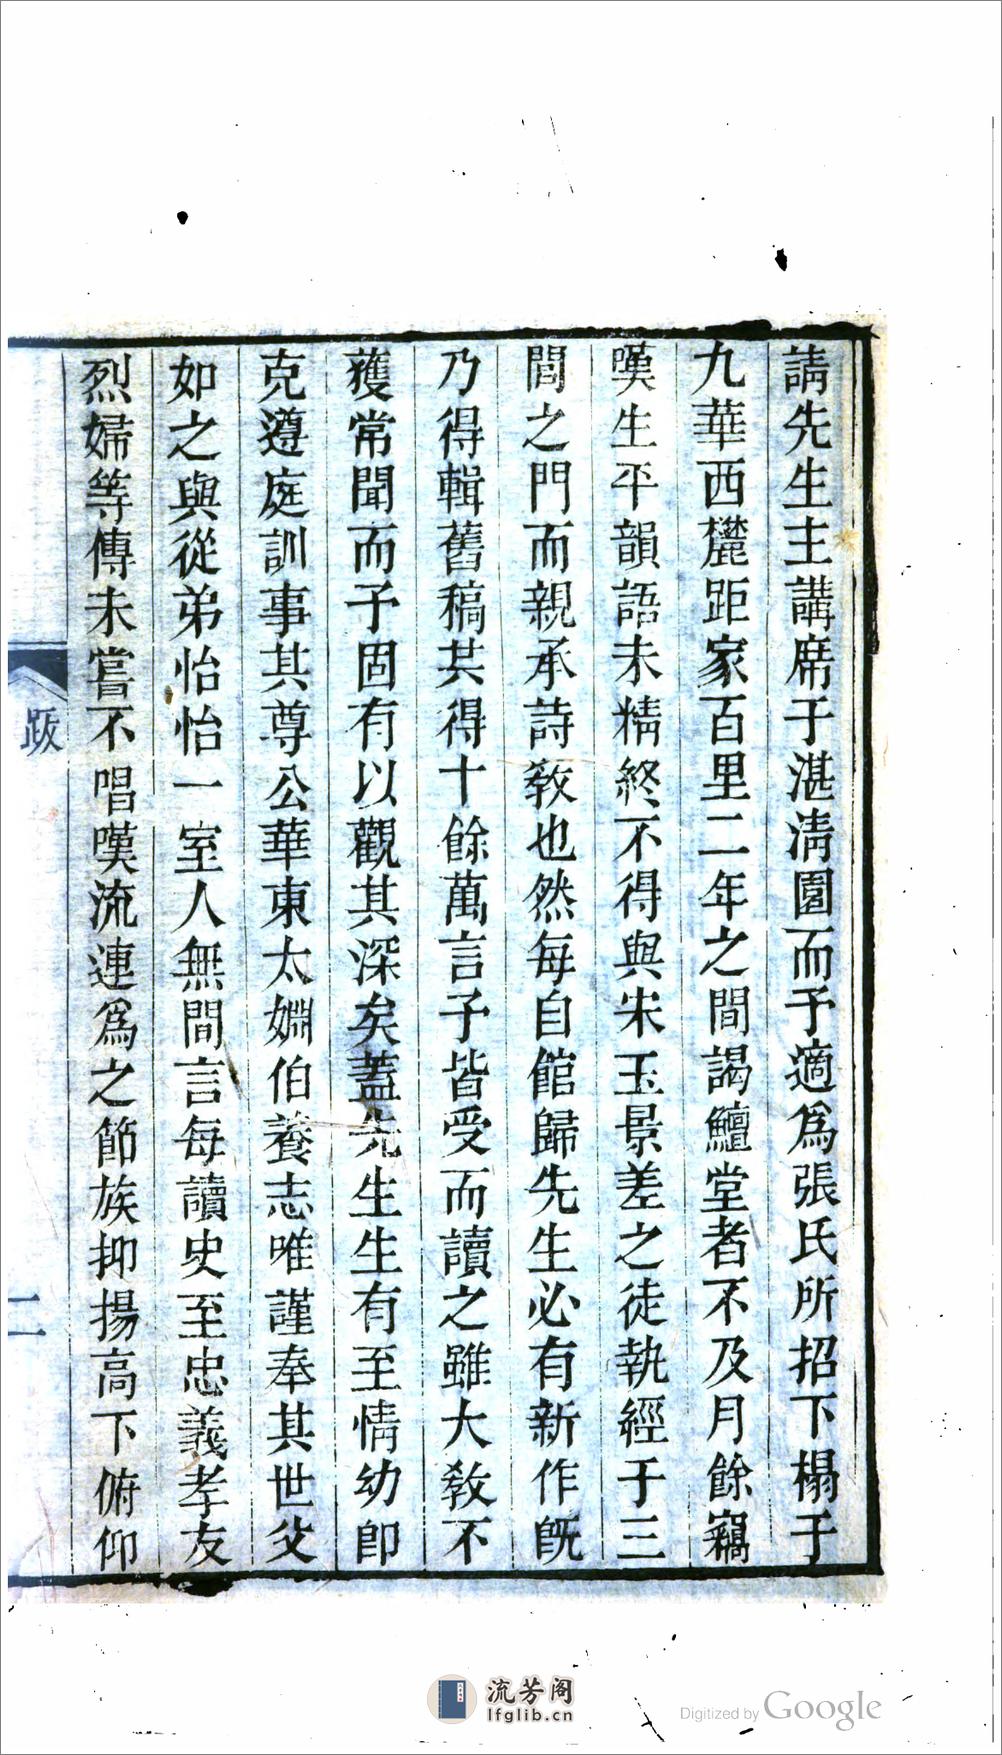 請先生主講席于湛淸園而予適爲張氏所招下榻于
九華西麓距家百里二年之間謁鱣堂者不及月餘竊
嘆生平韻語未精終不得與宋玉景差之徒執經于三
閭之門而親承詩敎也然每自館歸先生必有新作旣
乃得輯舊稿共得十餘萬言予皆受而讀之雖大敎不
獲常聞而予固有以觀其深矣蓋先生生有至情幼卽
克遵庭訓事其尊公華東太姻伯養志唯謹奉其世父
如之與從弟怡怡一室人無間言每讀史至忠義孝友
烈婦等傳未嘗不唱嘆流連爲之節族抑揚高下俯仰
跋
二
流芳阁
lfglib.cn
Digitized by Google